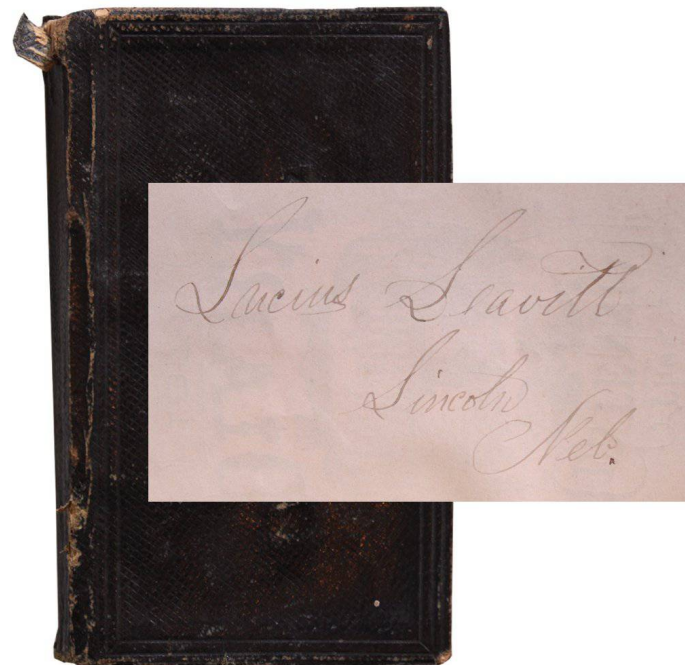 Lucius Leavitt
Lincoln
Neb.